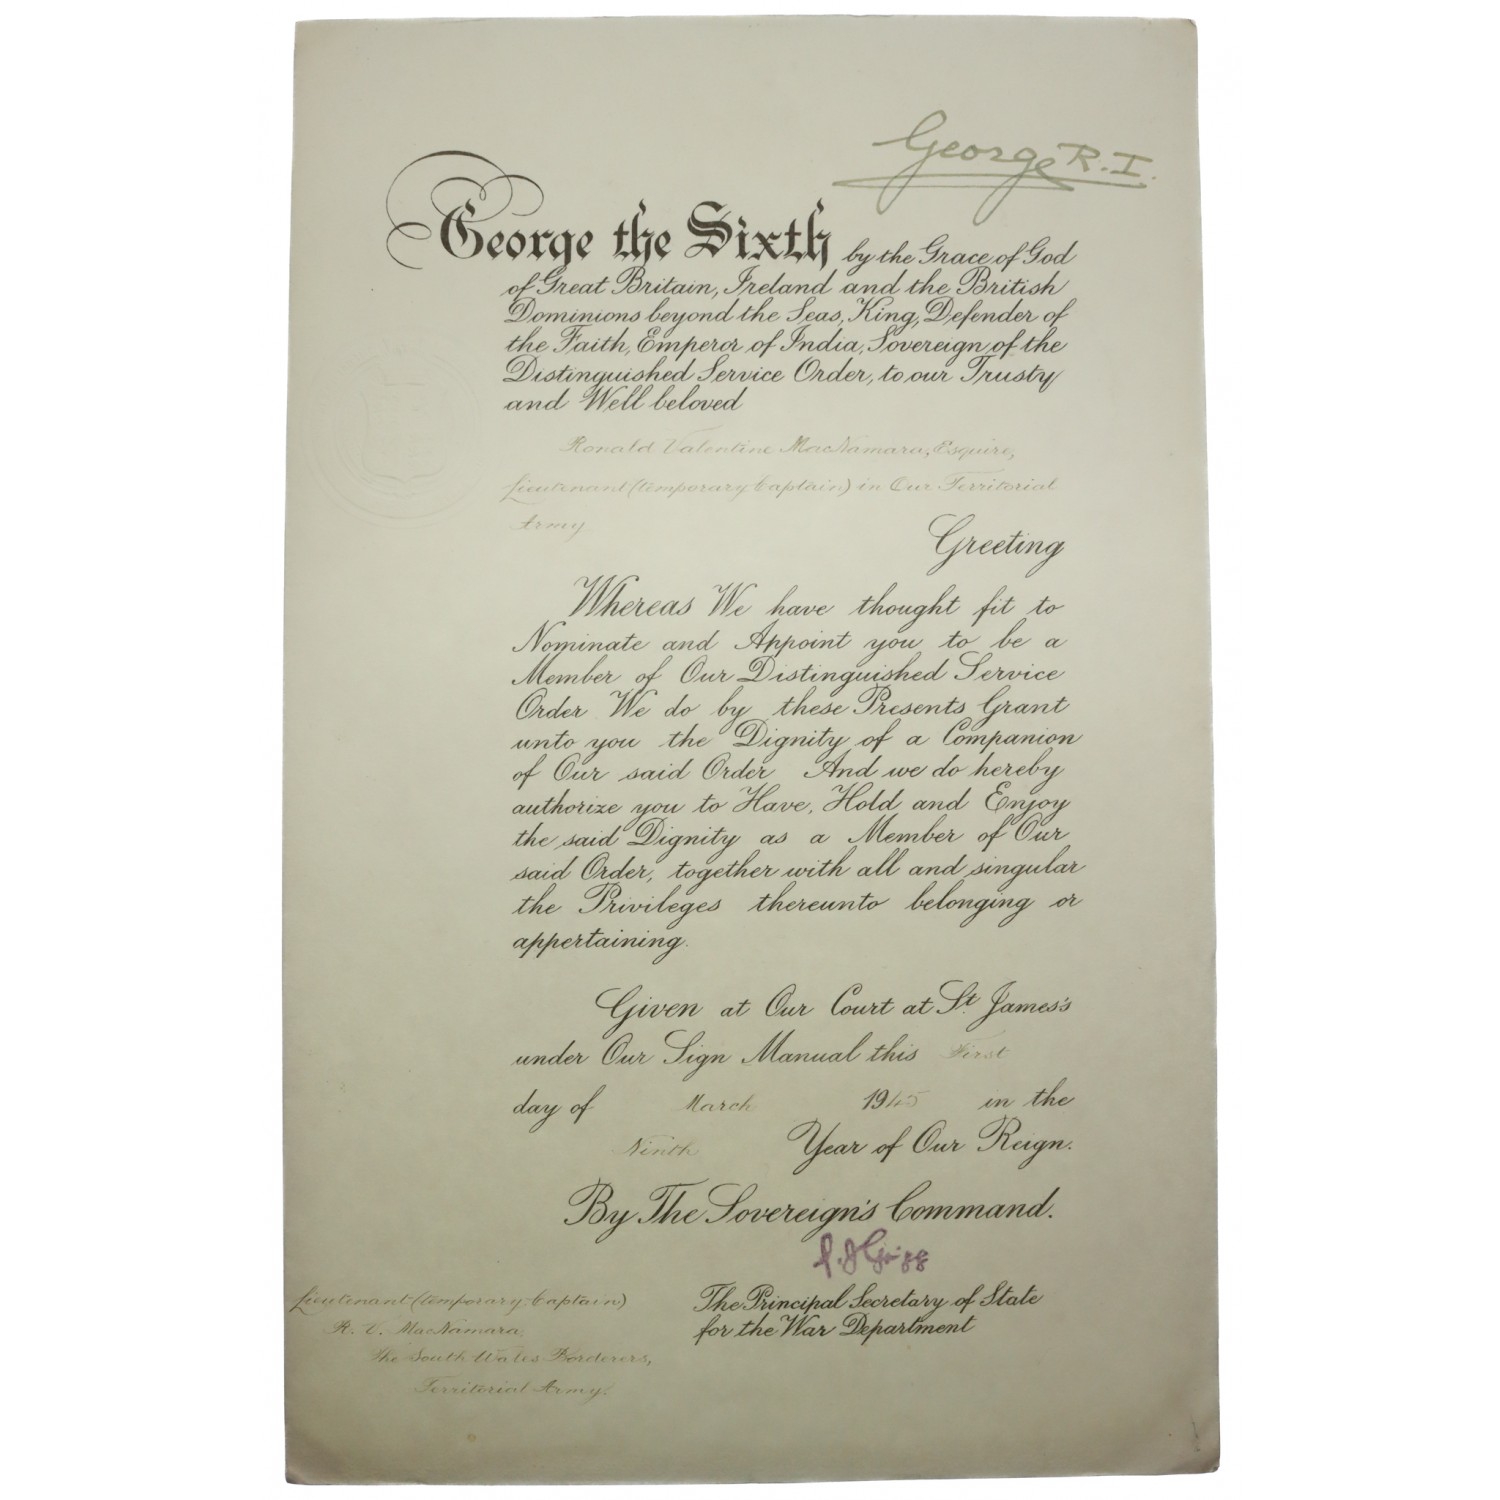 George R.I.
George the Sixth by the Grace of God
of Great Britain, Ireland and the British
Dominions beyond the Seas, King, Defender of
the Faith, Emperor of India, Sovereign of the
Distinguished Service Order, to our Trusty
and Well beloved
Ronald Valentine MacNamara, Esquire,
Lieutenant (temporary Captain) in Our Territorial
Army
Greeting
Whereas We have thought fit to
Nominate and Appoint you to be a
Member of Our Distinguished Service
Order We do by these Presents Grant
unto you the Dignity of a Companion
of Our said Order And we do hereby
authorize you to Have, Hold and Enjoy
the said Dignity as a Member of Our
said Order, together with all and singular
the Privileges thereunto belonging or
appertaining.
Given at Our Court at St. James's
under Our Sign Manual this First
day of March 1945 in the
Ninth Year of Our Reign.
By The Sovereign's Command.
P. J. Grigg
The Principal Secretary of State
for the War Department
Lieutenant (temporary Captain)
R. V. MacNamara,
The South Wales Borderers,
Territorial Army.